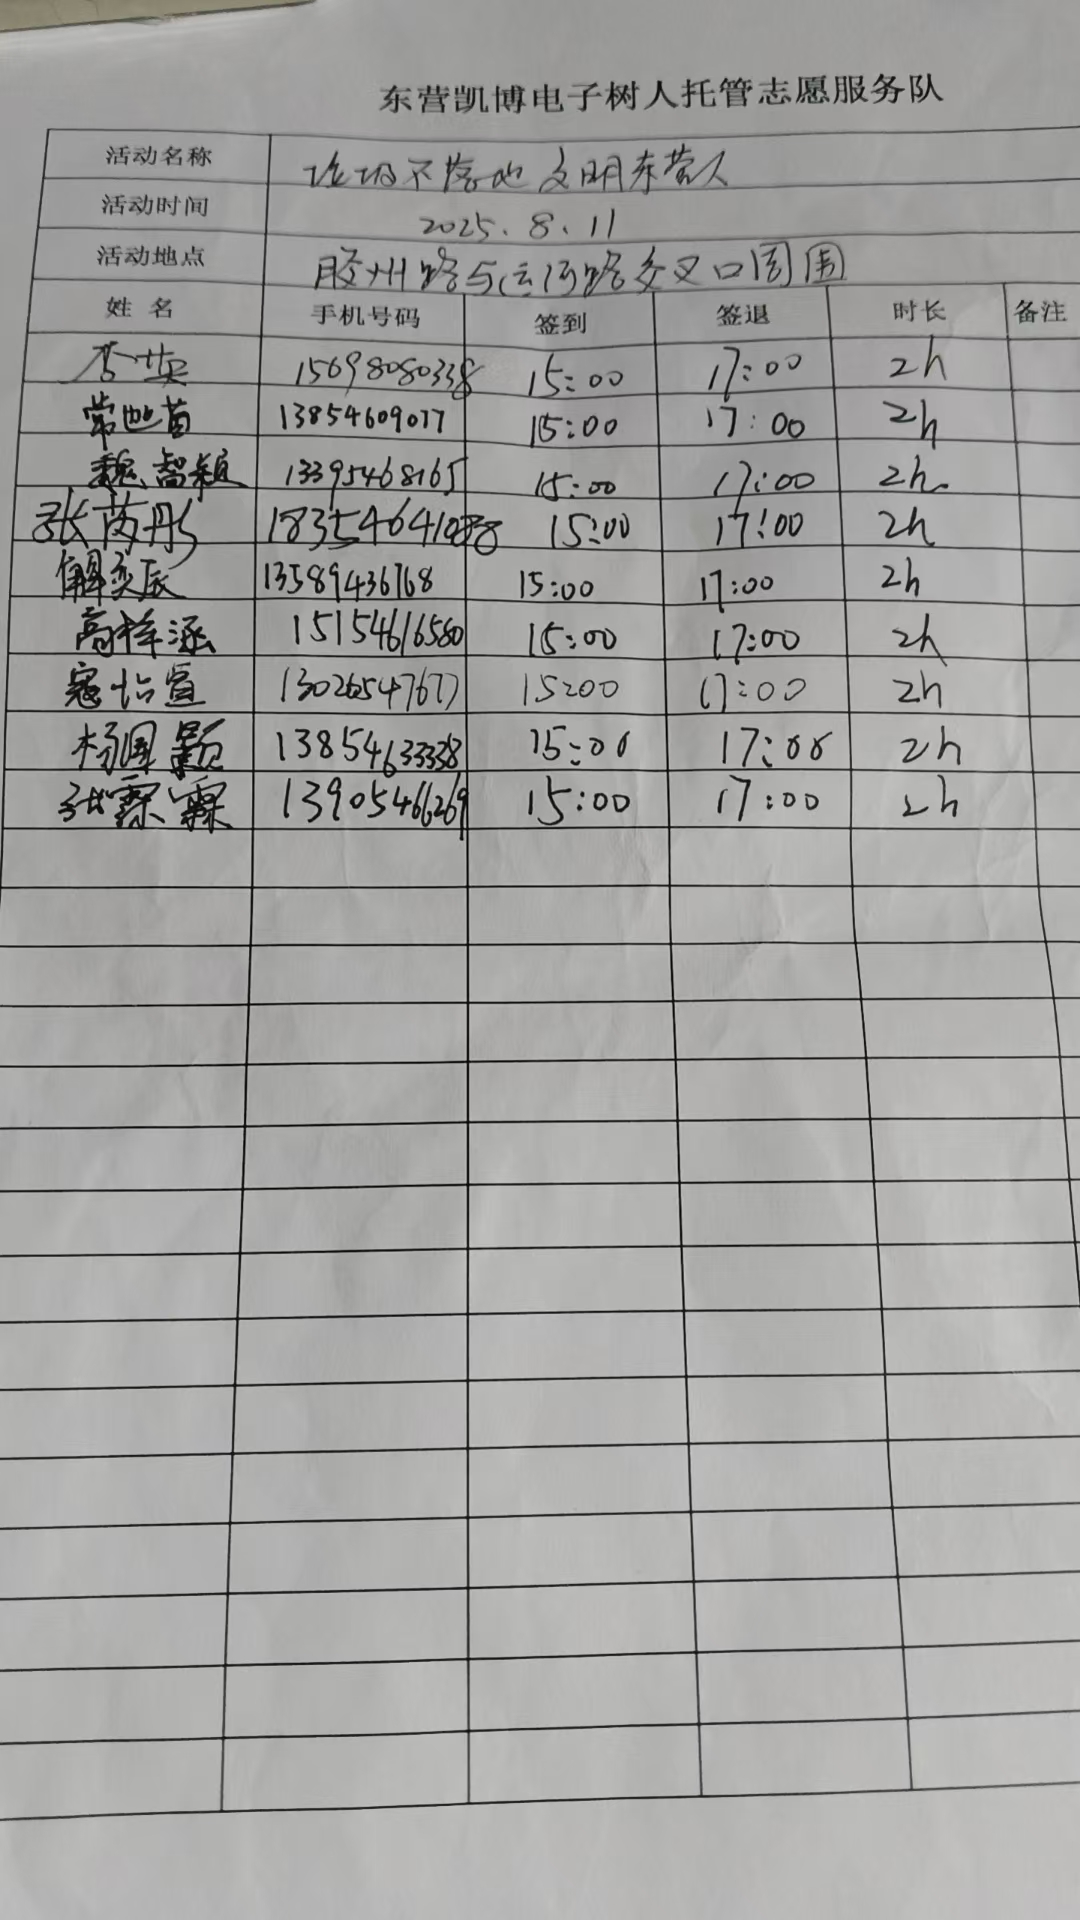 东营凯博电子树人托管志愿服务队
活动名称 垃圾不落地 文明东营人
活动时间 2025.8.11
活动地点 胶州路与运河路交叉口周围
姓名 手机号码 签到 签退 时长 备注
李英 15698080338 15:00 17:00 2h
常世苗 13854609077 15:00 17:00 2h
魏智颖 13395468165 15:00 17:00 2h
张芮彤 15:00 17:00 2h
解奕辰 13589436768 15:00 17:00 2h
高梓涵 15154616580 15:00 17:00 2h
寇怡宣 13026547677 15:00 17:00 2h
杨国颢 13854633338 15:00 17:00 2h
张霖霖 13905466269 15:00 17:00 2h